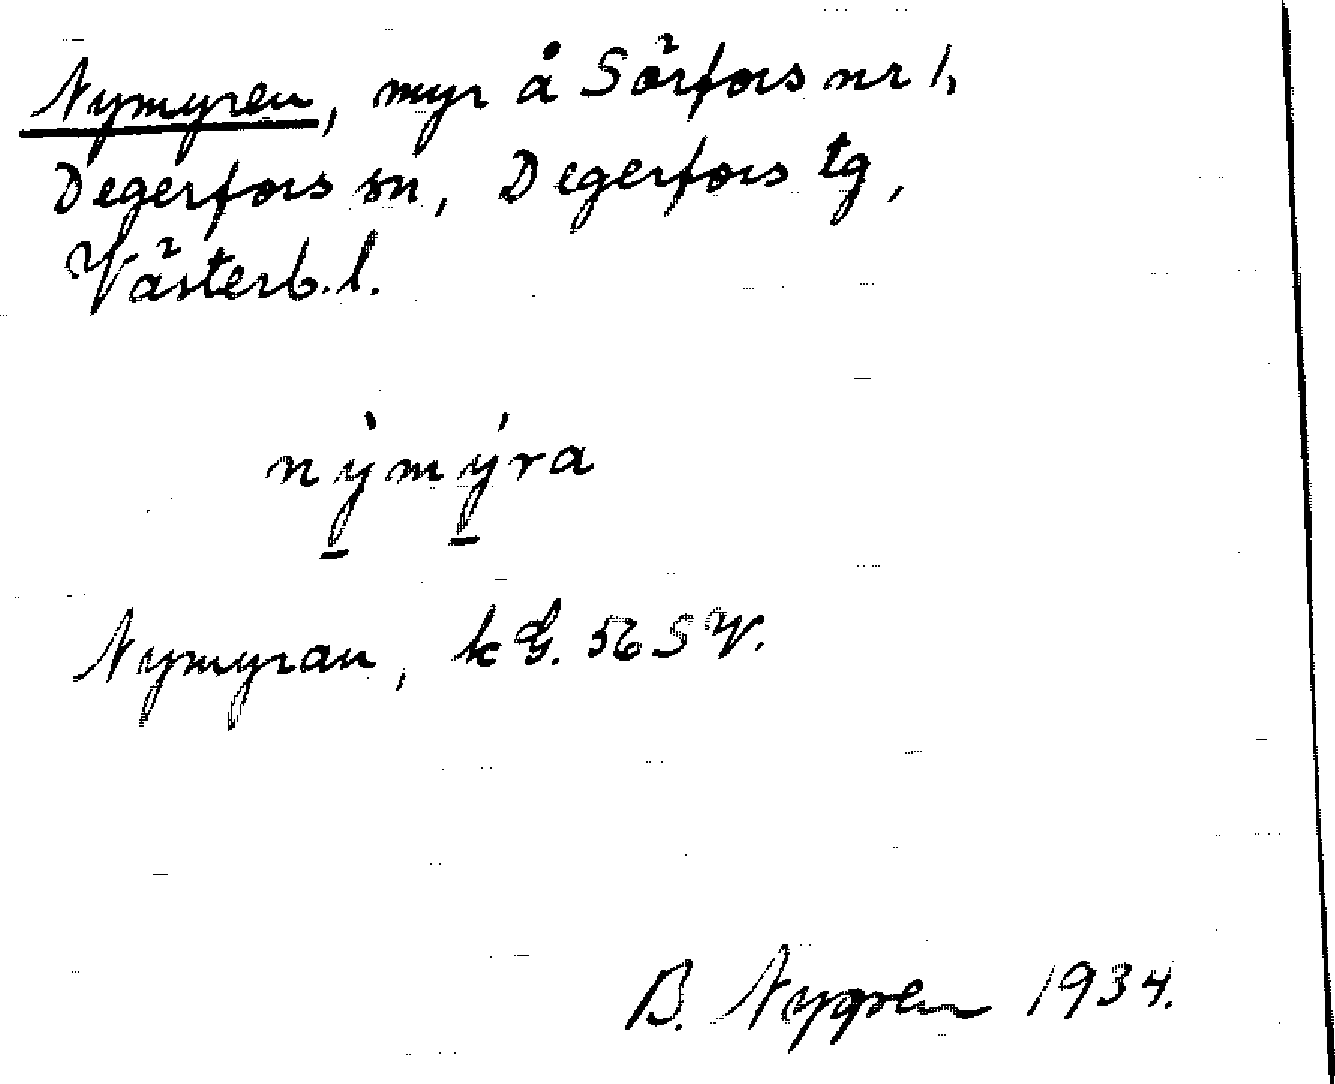 Nymyren, myr å Sörfors nr 1,
Degerfors sn, Degerfors tg,
Västerb. l.
nỳmýra
Nymyran, k G. 56 SV.
B. Nygren 1934.